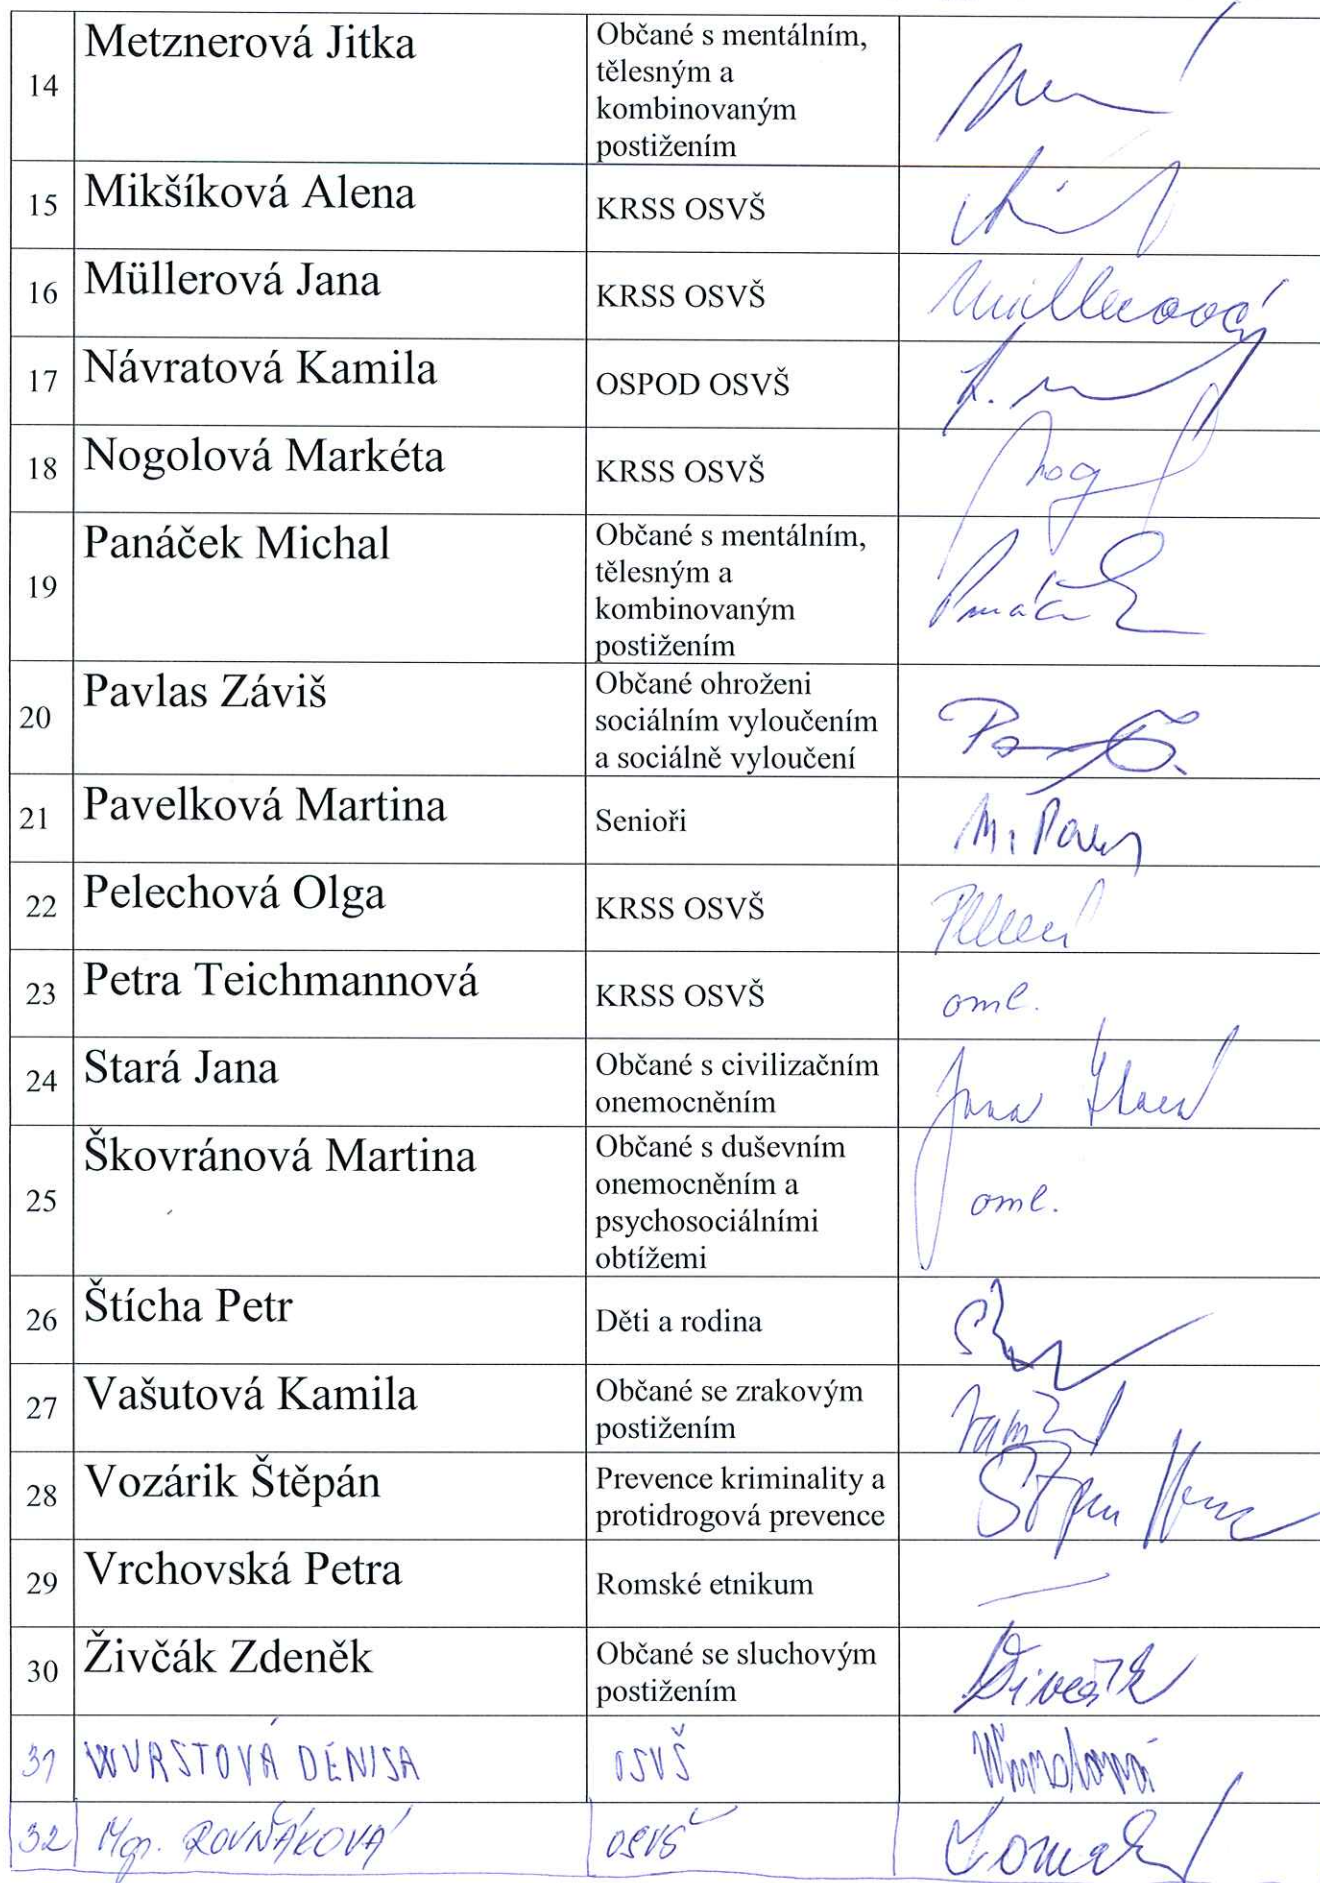 14 Metznerová Jitka Občané s mentálním,
tělesným a
kombinovaným
postižením
15 Mikšíková Alena KRSS OSVŠ
16 Müllerová Jana KRSS OSVŠ Müllerová
17 Návratová Kamila OSPOD OSVŠ
18 Nogolová Markéta KRSS OSVŠ
19 Panáček Michal Občané s mentálním,
tělesným a
kombinovaným
postižením
20 Pavlas Záviš Občané ohroženi
sociálním vyloučením
a sociálně vyloučení
21 Pavelková Martina Senioři
22 Pelechová Olga KRSS OSVŠ
23 Petra Teichmannová KRSS OSVŠ oml.
24 Stará Jana Občané s civilizačním Jana Stará
onemocněním
25 Škovránová Martina Občané s duševním
onemocněním a oml.
psychosociálními
obtížemi
26 Štícha Petr Děti a rodina
27 Vašutová Kamila Občané se zrakovým
postižením
28 Vozárik Štěpán Prevence kriminality a
protidrogová prevence
29 Vrchovská Petra Romské etnikum —
30 Živčák Zdeněk Občané se sluchovým Živčák
postižením
31 WURSTOVÁ DENISA OSVŠ Wurstová
32 Mgr. ROVŇÁKOVÁ OSVŠ